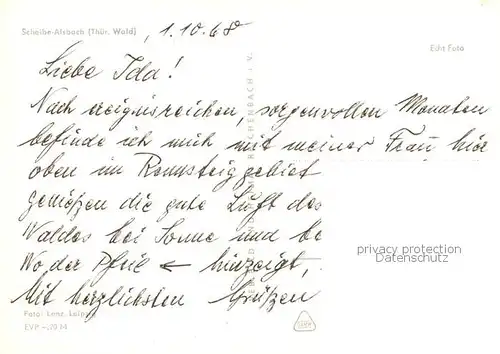 Scheibe-Alsbach (Thür. Wald)
, 1.10.68
Echt Foto
Liebe Ida!
Nach ereignisreichen, sorgenvollen Monaten
befinde ich mich mit meiner Frau hier
oben im Rennsteiggebiet
genießen die gute Luft des
Waldes bei Sonne und be
Wo der Pfeil ← hinzeigt,
Mit herzlichsten Grüßen
privacy protection
Datenschutz
Foto: Lenz, Leipzig
REICHENBACH I. V.